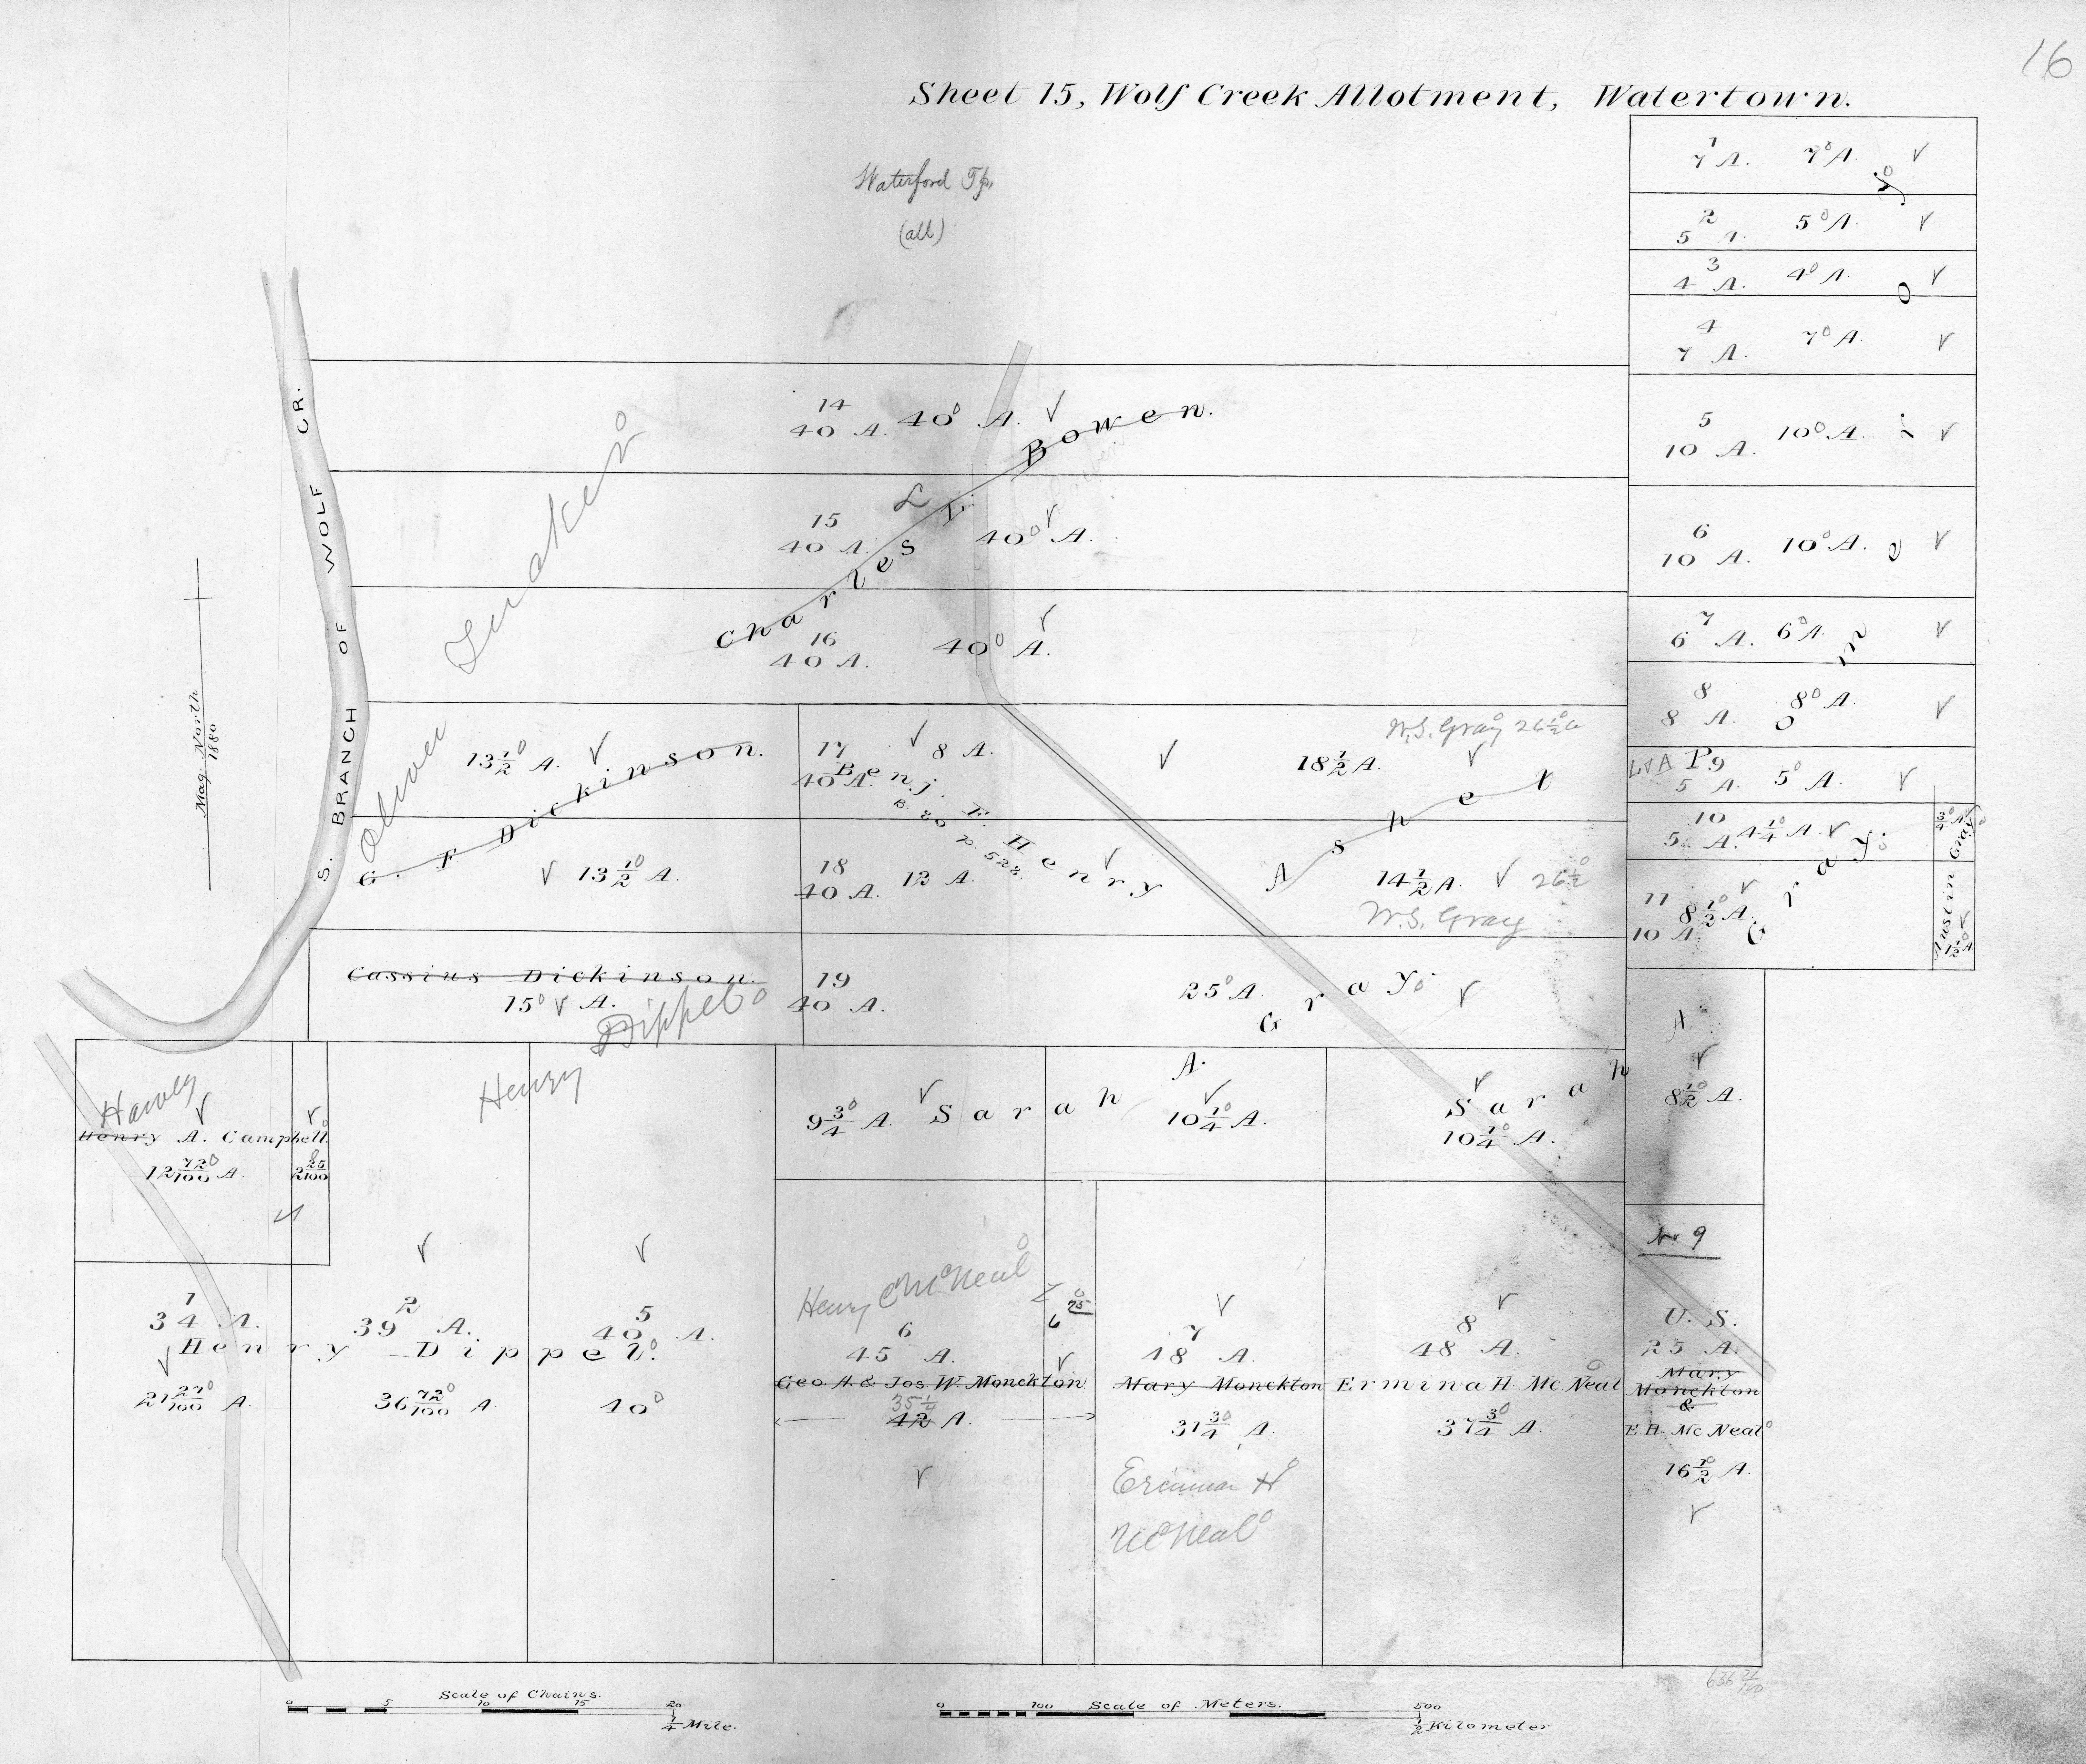 16
Sheet 15, Wolf Creek Allotment, Watertown.
Waterford Tp.
(all)
1
7 A. 7⁰ A. ✓
2
5 A. 5⁰ A. ✓
3
4 A. 4⁰ A. ✓
4
7 A. 7⁰ A. ✓
5
10 A. 10⁰ A. ✓
6
10 A. 10⁰ A. ✓
7
6 A. 6⁰ A. ✓
8
8 A. 8⁰ A. ✓
P. 9
5 A. 5⁰ A. ✓
10
5 A. 4 1/4 A. ✓
3/4 A
11
10 A. 8 1/2 A. ✓
Gray
Austin Gray
1 1/2 A ✓
S. BRANCH OF WOLF CR.
Mag. North
1880
14
40 A. 40⁰ A. ✓
15
40 A. 40⁰ A. ✓
16
40 A. 40⁰ A. ✓
Charles L. Bowen.
L
Oliver
13 1/2 A. ✓
C. F. Dickinson.
✓ 13 1/2 A.
17
40 A. ✓ 8 A.
Benj. F. Henry
B. 80 p. 528.
18
40 A. 12 A. ✓
✓ 18 1/2 A. ✓
W.S. Gray 26 1/2 a
Asher
14 1/2 A. ✓ 26 1/2
W.S. Gray
Cassius Dickinson.
15⁰ ✓ A.
19
40 A.
25⁰ A. Gray ✓
Henry Dippel
Harvey
✓
Henry A. Campbell
12 72/100 A.
✓
2 25/100
✓
9 3/4 A. ✓ Sarah A.
✓
10 1/4 A.
✓
Sarah
10 1/4 A.
A.
✓
8 1/2 A.
No 9
1
34 A.
2
39 A.
✓
5
40 A.
✓
Henry Dippel
✓
21 27/100 A.
36 72/100 A
40⁰
Henry C McNeal
6
45 A.
✓
Geo A. & Jos W. Monckton
35 1/4
42 A.
✓
✓
7
48 A.
Mary Monckton
31 3/4 A.
Erminna H
McNeal
✓
8
48 A.
Ermina H. McNeal
37 3/4 A.
U. S.
25 A.
Mary
Monckton
&
E. H. McNeal
16 1/2 A.
✓
Scale of Chains.
0 5 10 15 20
1/4 Mile.
Scale of Meters.
0 100 500
1/2 Kilometer